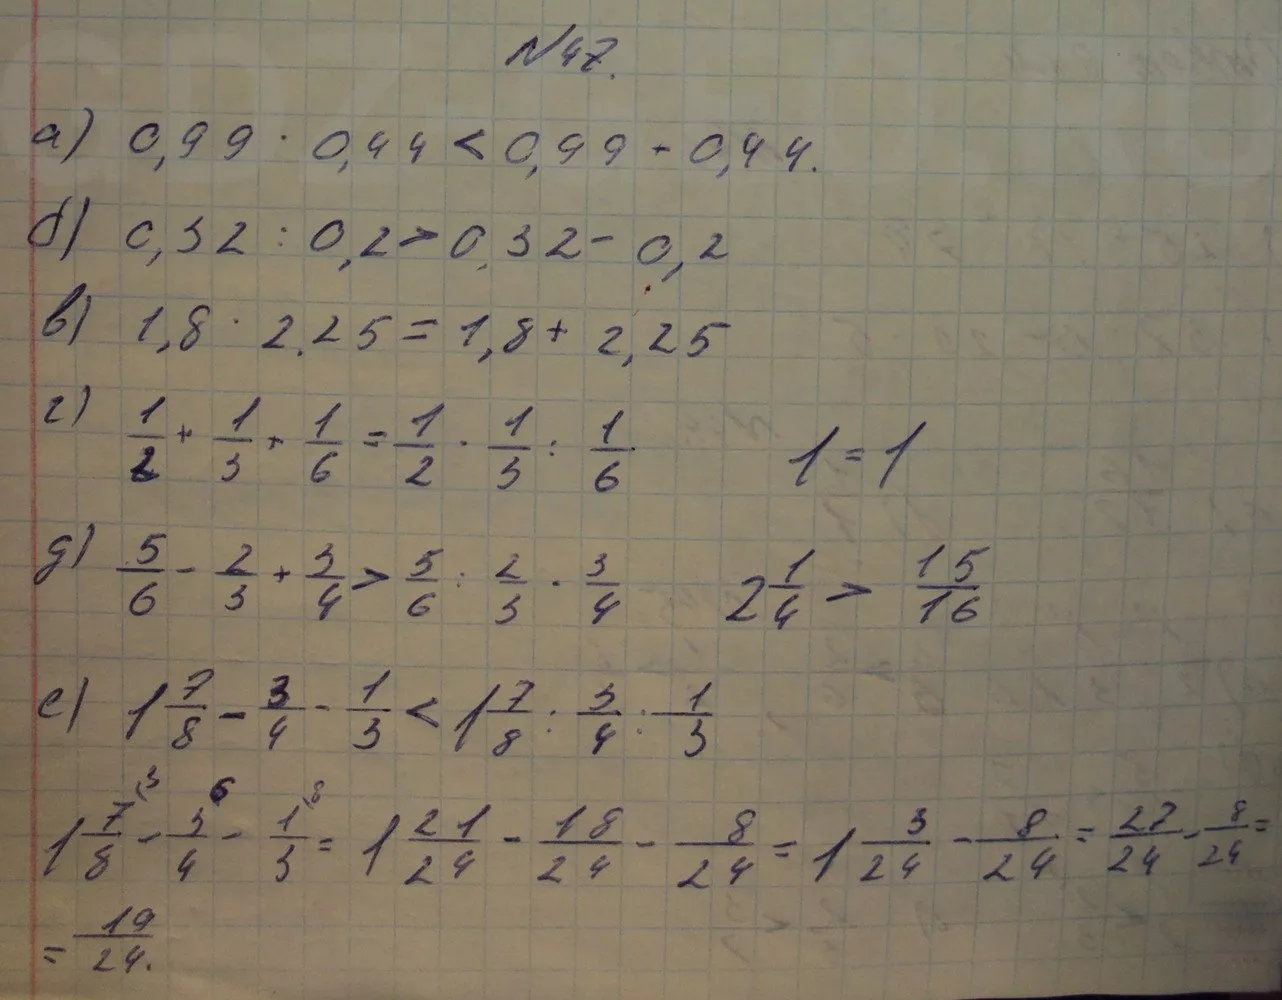 №47.
а) 0,99 · 0,44 < 0,99 - 0,44.
б) 0,32 : 0,2 > 0,32 - 0,2
в) 1,8 · 2,25 = 1,8 + 2,25
г) 1/2 + 1/3 + 1/6 = 1/2 · 1/3 : 1/6 1 = 1
д) 5/6 - 2/3 + 3/4 > 5/6 : 2/3 · 3/4 2 1/4 > 15/16
е) 1 7/8 - 3/4 - 1/3 < 1 7/8 : 3/4 : 1/3
1 7/8 \3 - 3/4 \6 - 1/3 \8 = 1 21/24 - 18/24 - 8/24 = 1 3/24 - 8/24 = 27/24 - 8/24 =
= 19/24.